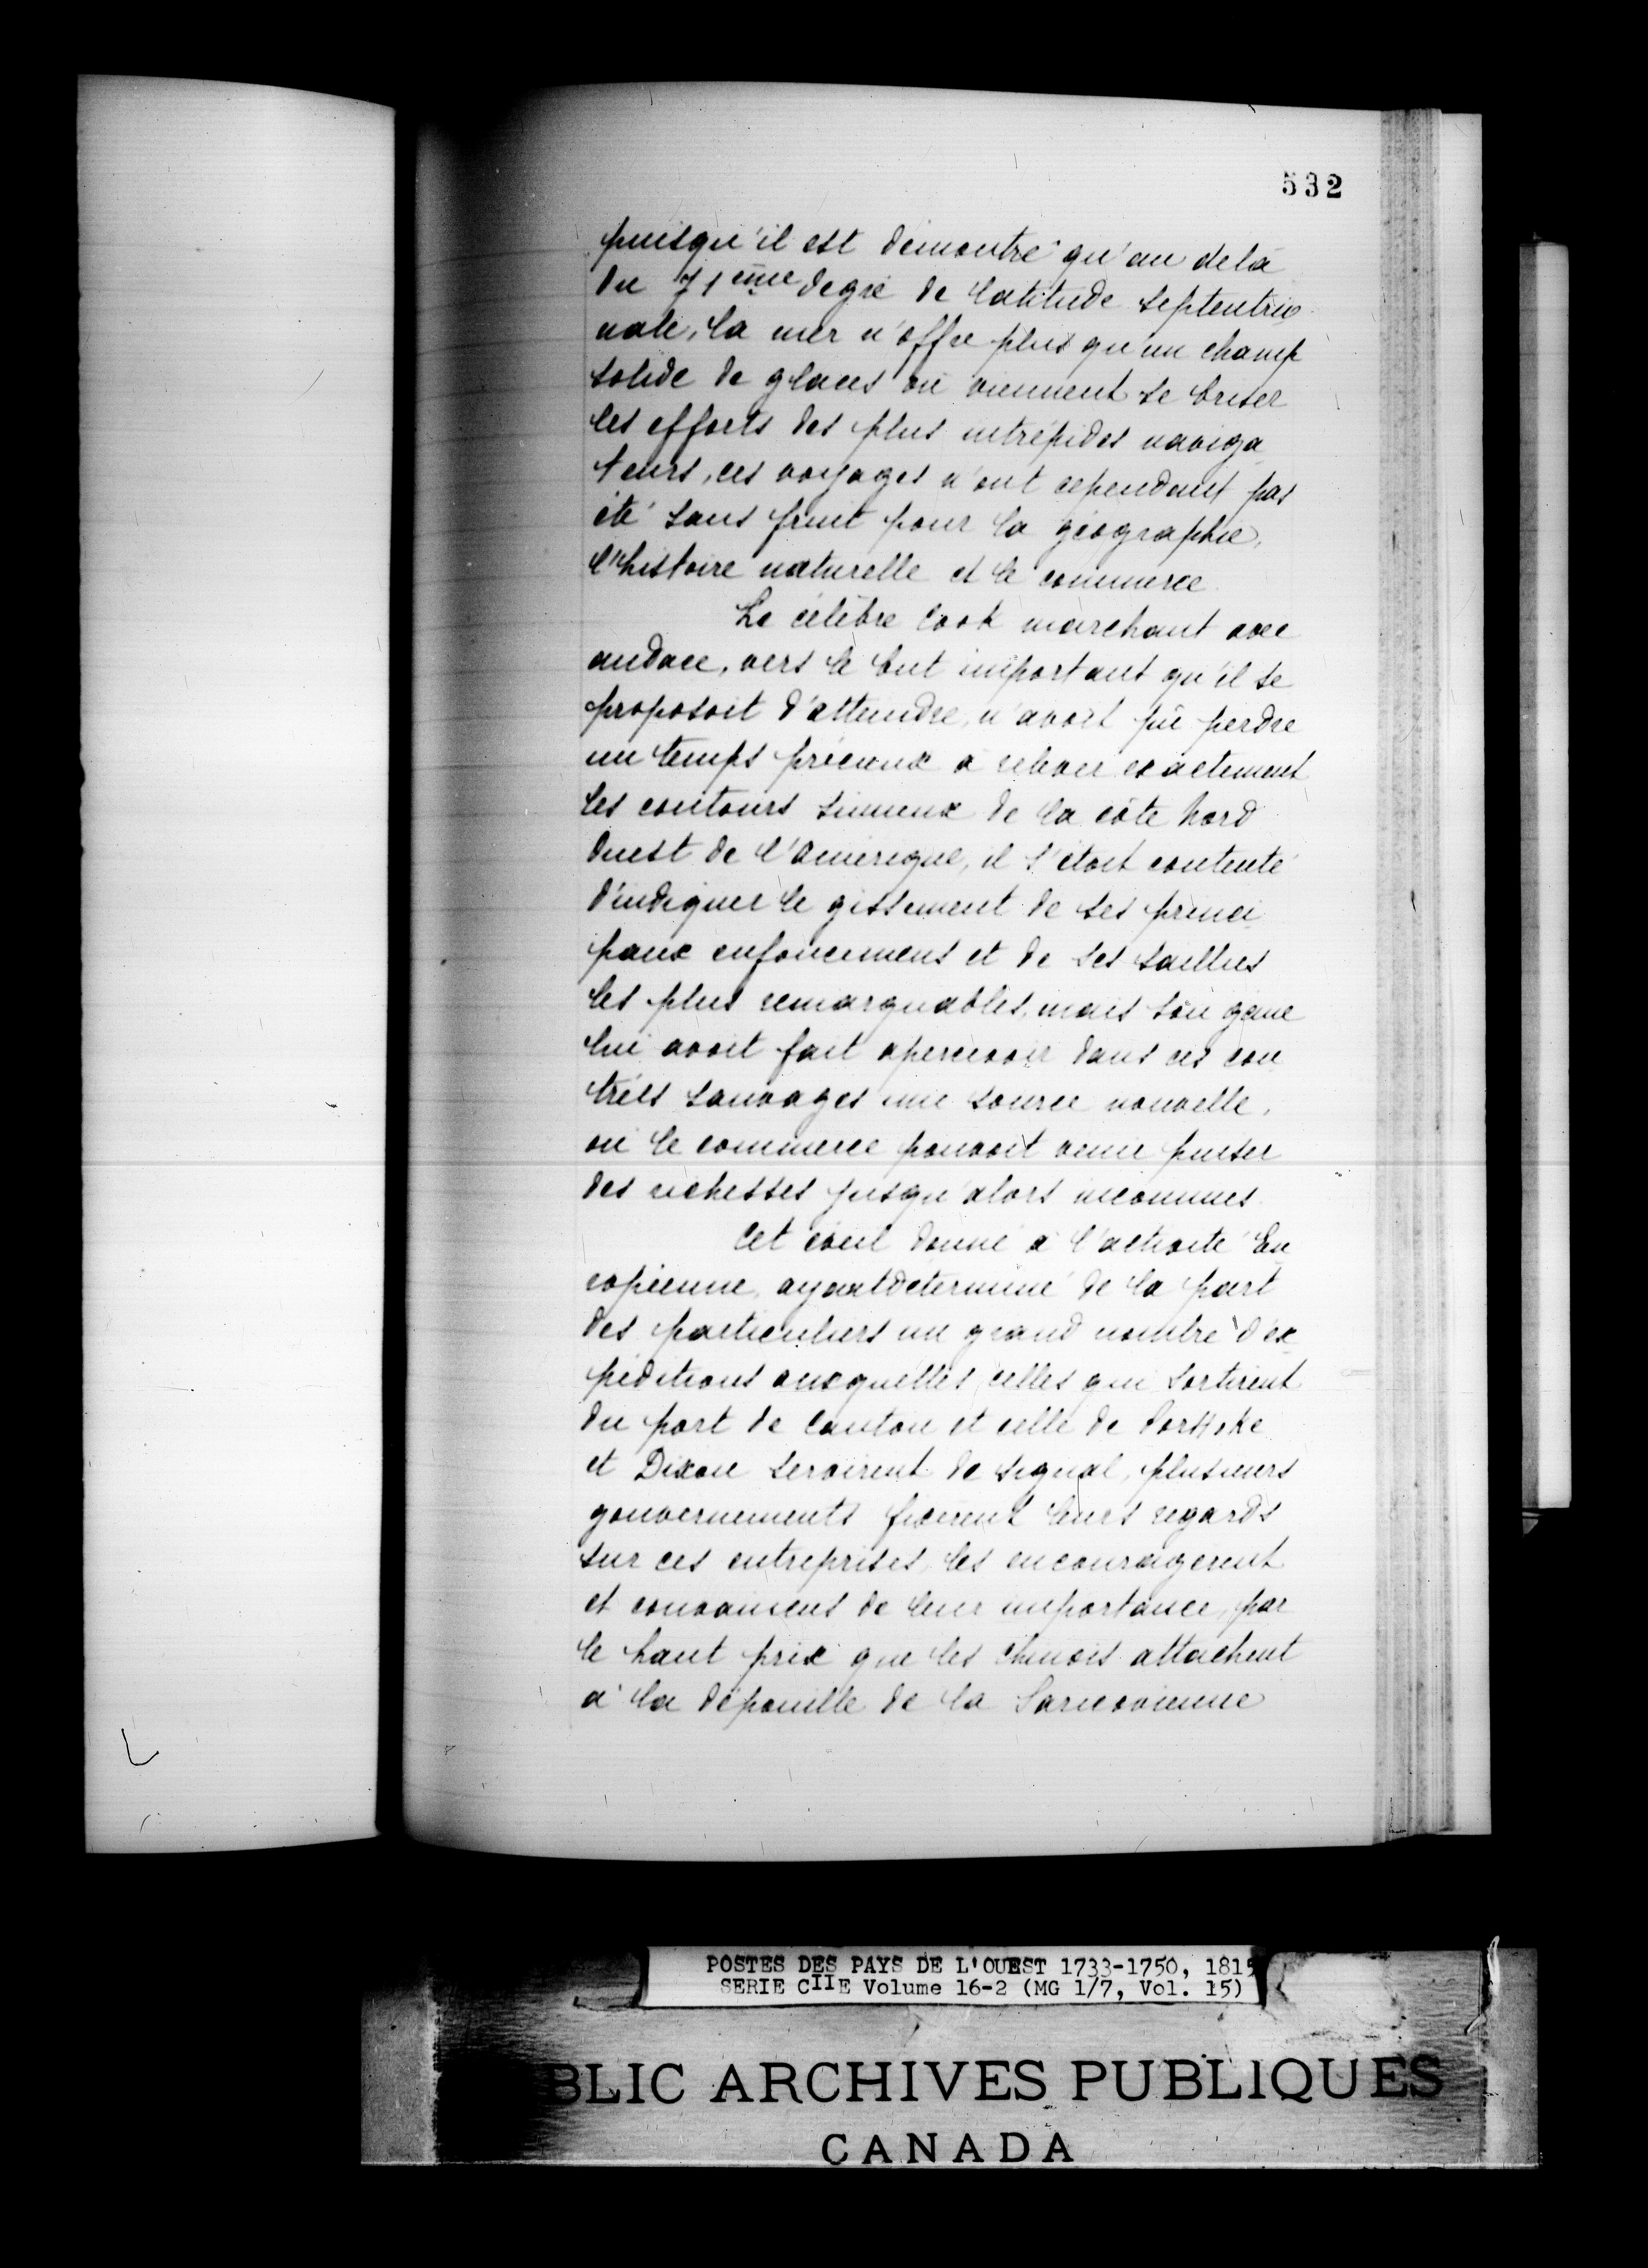 532
puisqu'il est démontré qu'au delà
du 71ème degré de latitude septentrio
nale, la mer n'offre plus qu'un champ
solide de glaces où viennent se briser
les efforts des plus intrépides naviga
teurs, ces voyages n'ont cependant pas
été sans fruit pour la géographie,
l'histoire naturelle et le commerce.
Le célèbre Cook marchant avec
audace, vers le but important qu'il se
proposoit d'atteindre, n'avoit pû perdre
un temps précieux à relever exactement
les contours sinueux de la côte Nord
Ouest de l'Amérique, il s'étoit contenté
d'indiquer le gissement de ses princi
paux enfoncemens et de ses saillies
les plus remarquables, mais son génie
lui avoit fait apercevoir dans ces con
trées sauvages une source nouvelle,
où le commerce pouvoit venir puiser
des richesses jusqu'alors inconnues.
Cet éveil donné à l'activité Eu
ropéenne, ayant déterminé de la part
des particuliers un grand nombre d'ex
péditions auxquelles celles qui sortirent
du port de Canton et celle de Portloke
et Dixon servirent de signal, plusieurs
gouvernements fixèrent leurs regards
sur ces entreprises, les encouragerent
et convaincus de leur importance, par
le haut prix que les Chinois attachent
à la dépouille de la Saricovienne
POSTES DES PAYS DE L'OUEST 1733-1750, 1815
SERIE CIIE Volume 16-2 (MG 1/7, Vol. 15)
BLIC ARCHIVES PUBLIQUES
CANADA